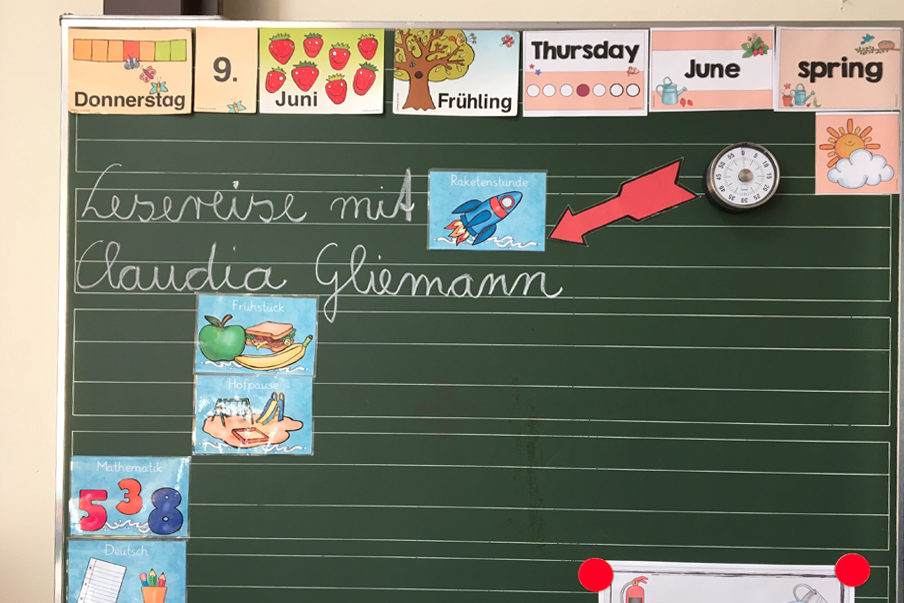 Donnerstag
9.
Juni
Frühling
Thursday
June
spring
Lesereise mit
Raketenstunde
Claudia Gliemann
Frühstück
Hofpause
Mathematik
5 3 8
Deutsch